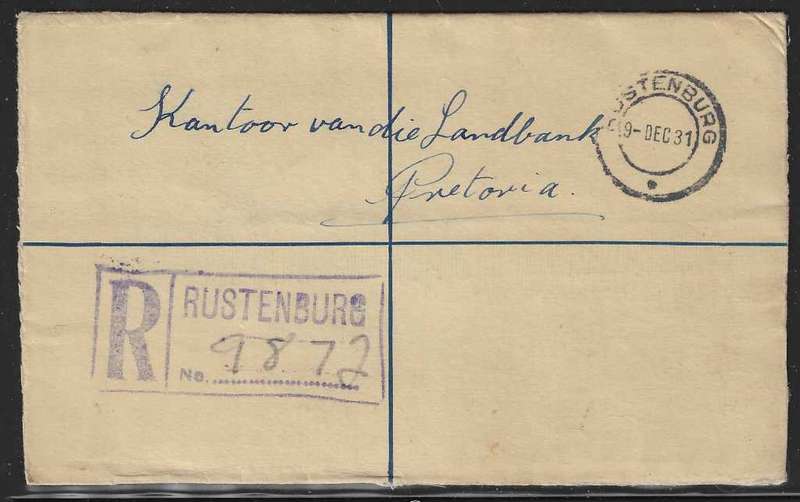 Kantoor van die Landbank
Pretoria.
RUSTENBURG
9-DEC 31
R
RUSTENBURG
No. 9872